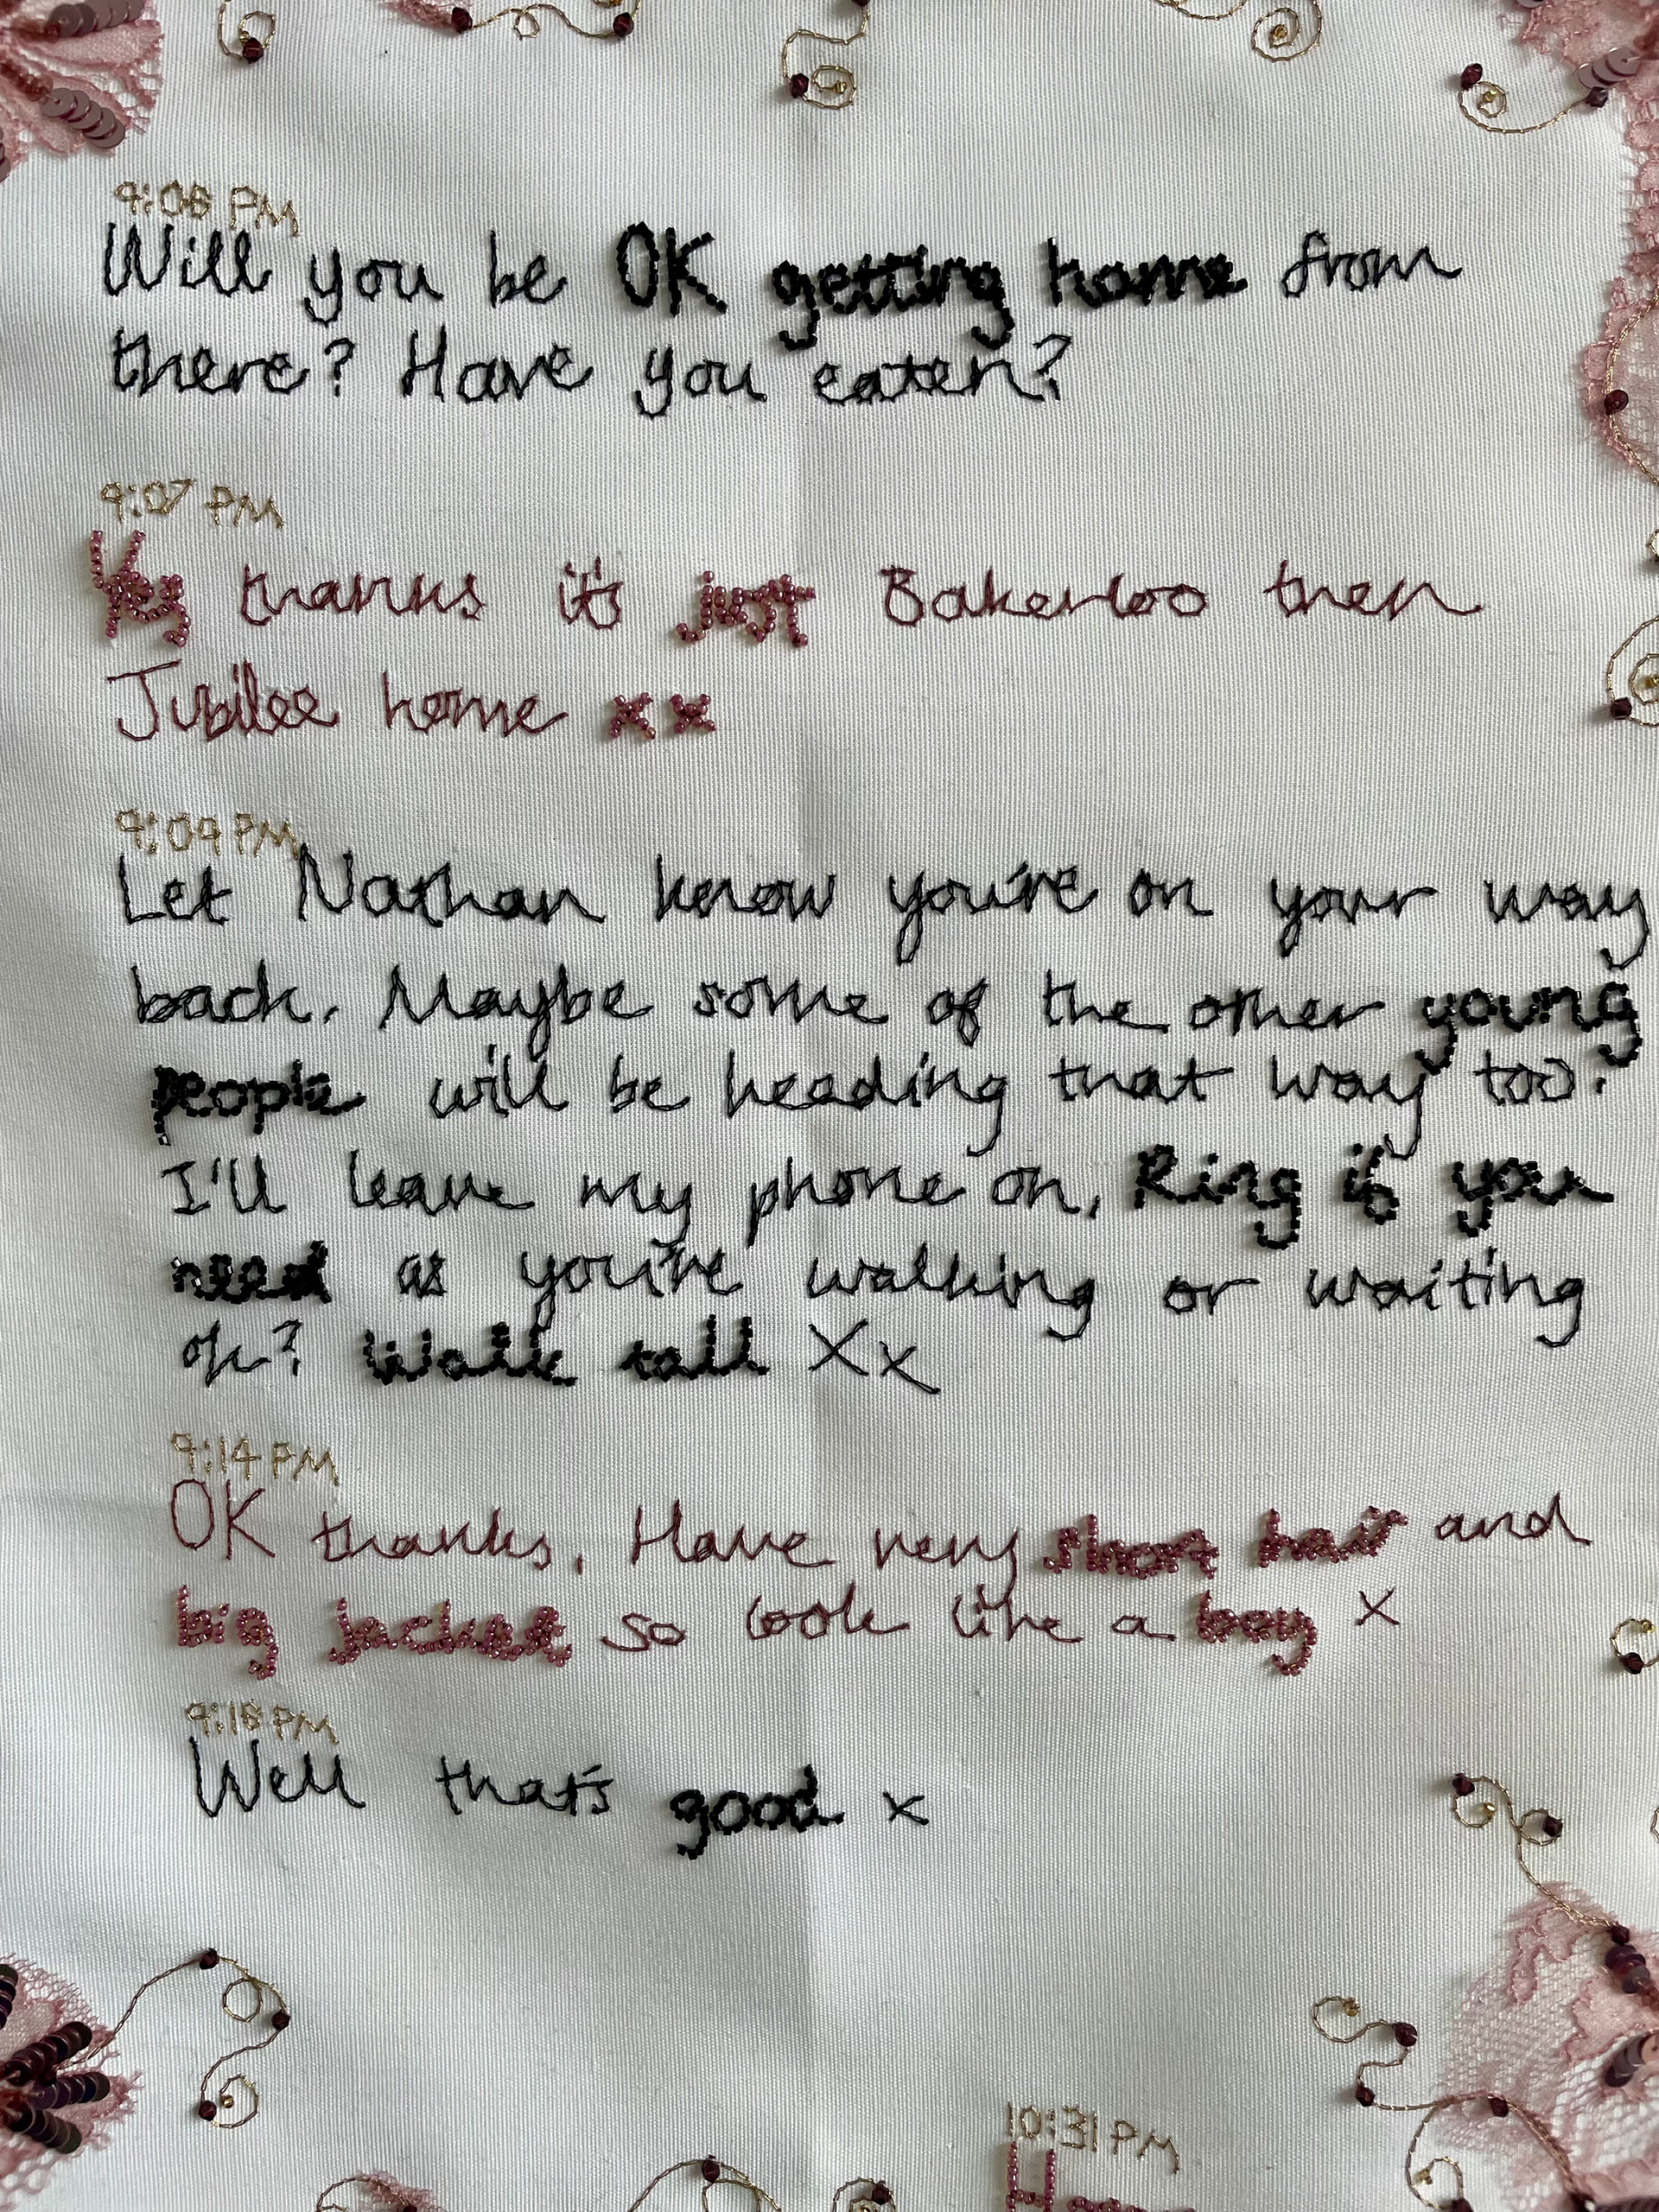 9:06 PM
Will you be OK getting home from
there? Have you eaten?
9:07 PM
Yes thanks it's just Bakerloo then
Jubilee home xx
9:09 PM
Let Nathan know you're on your way
back. Maybe some of the other young
people will be heading that way too?
I'll leave my phone on, Ring if you
need as you're walking or waiting
ok? Walk tall Xx
9:14 PM
OK thanks. Have very short hair and
big jacket so look like a boy x
9:18 PM
Well that's good x
10:31 PM